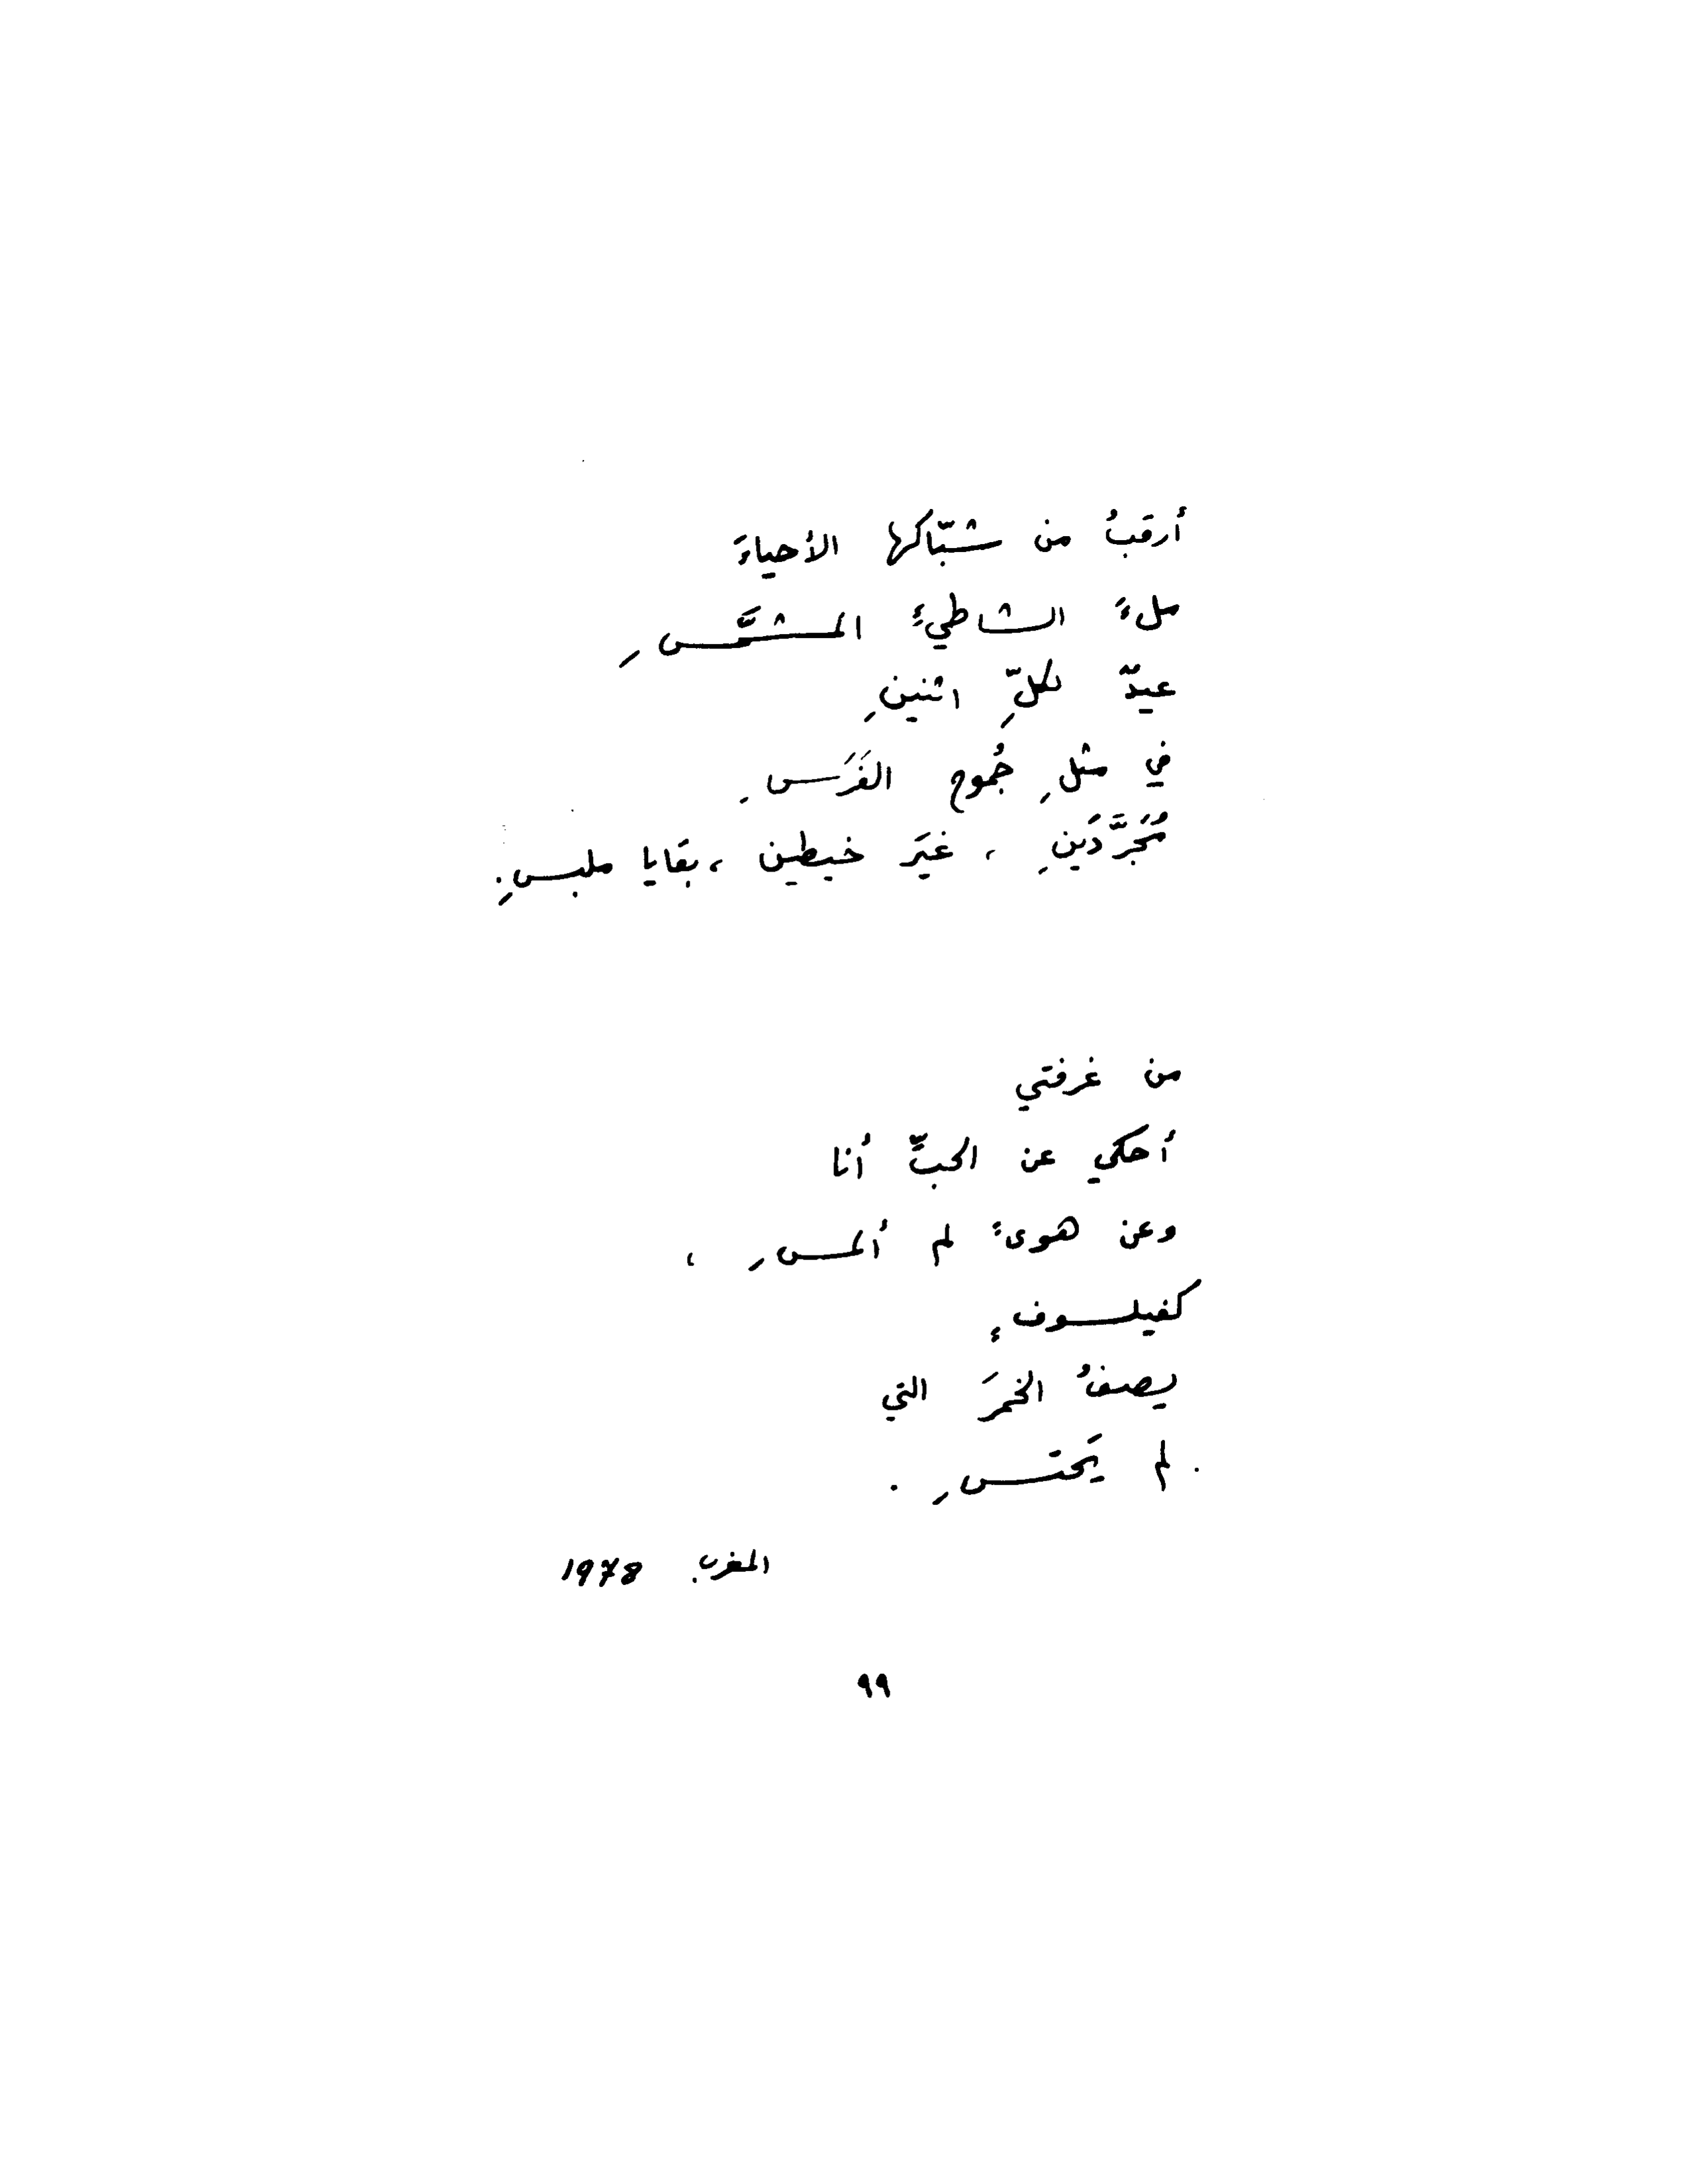 أرقبُ من شبّاكها الأحياءَ
ملءَ الشاطيءِ المشمَّسِ
عيدٌ لكلِّ اثنينِ
في مثلِ جُموح الفَرَسِ
مُجَرَّدَينِ ، غيَر خيطين ، بقايا ملبسِ .
من غرفتي
أحكي عن الحبِّ أنا
وعن هوىً لم ألمسِ ،
كفيلسوفٍ
يصفُ الخمرَ التي
لم يَحتسِ .
المغرب 1978
٩٩